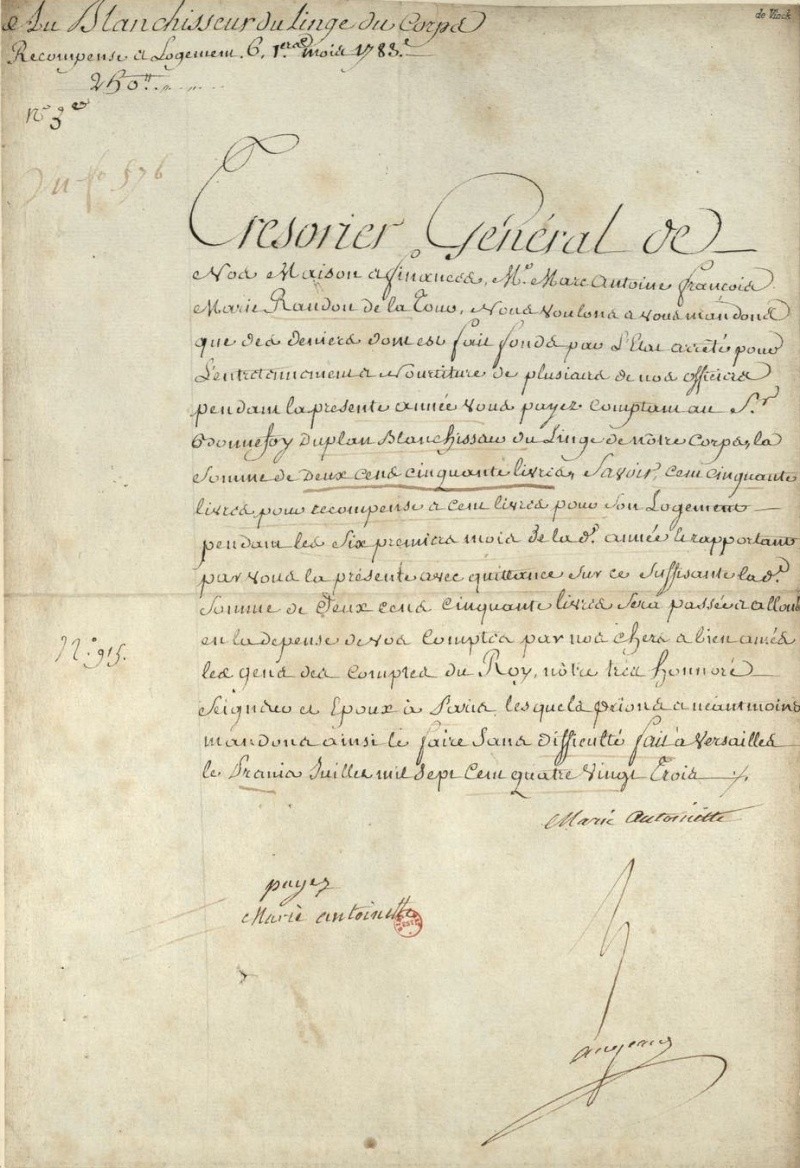 de Vinck
Au Blanchisseur du Linge du Corps
Recompense & Logement. 6. 1.ers mois 1783.
250
n.º 3
fº 576
Tresorier Général de
Nos Maison & finances, M.e Marc Antoine françois
Marie Randon de la Tour, Nous voulons & vous mandons
que des deniers dont est fait fonds par L'Etat arrêté pour
L'entretennement & Nourriture de plusieurs de nos officiers
pendant la presente année vous payez Comptant au S.r
Bonnefoy Duplan Blanchisseur du Linge de notre Corps, la
Somme de Deux cens cinquante livres, Savoir, cent cinquante
livres pour recompense & cent livres pour son Logement
pendant les Six premiers mois de la d.e année & rapportant
par vous la présente avec quittance sur ce suffisante la d.e
Somme de Deux cens cinquante livres sera passée & allouée
en la depense de vos Comptes par nos chers & bien amés
les gens des Comptes du Roy, nôtre très honnoré
Seigneur et Epoux à Paris, lesquels prions & néantmoins
mandons ainsi le faire sans difficulté fait à Versailles
le Juillet mil Sept Cent quatre Vingt Trois
Marie Antoinette
N.º 915.
payez
Marie Antoinette
Augeard